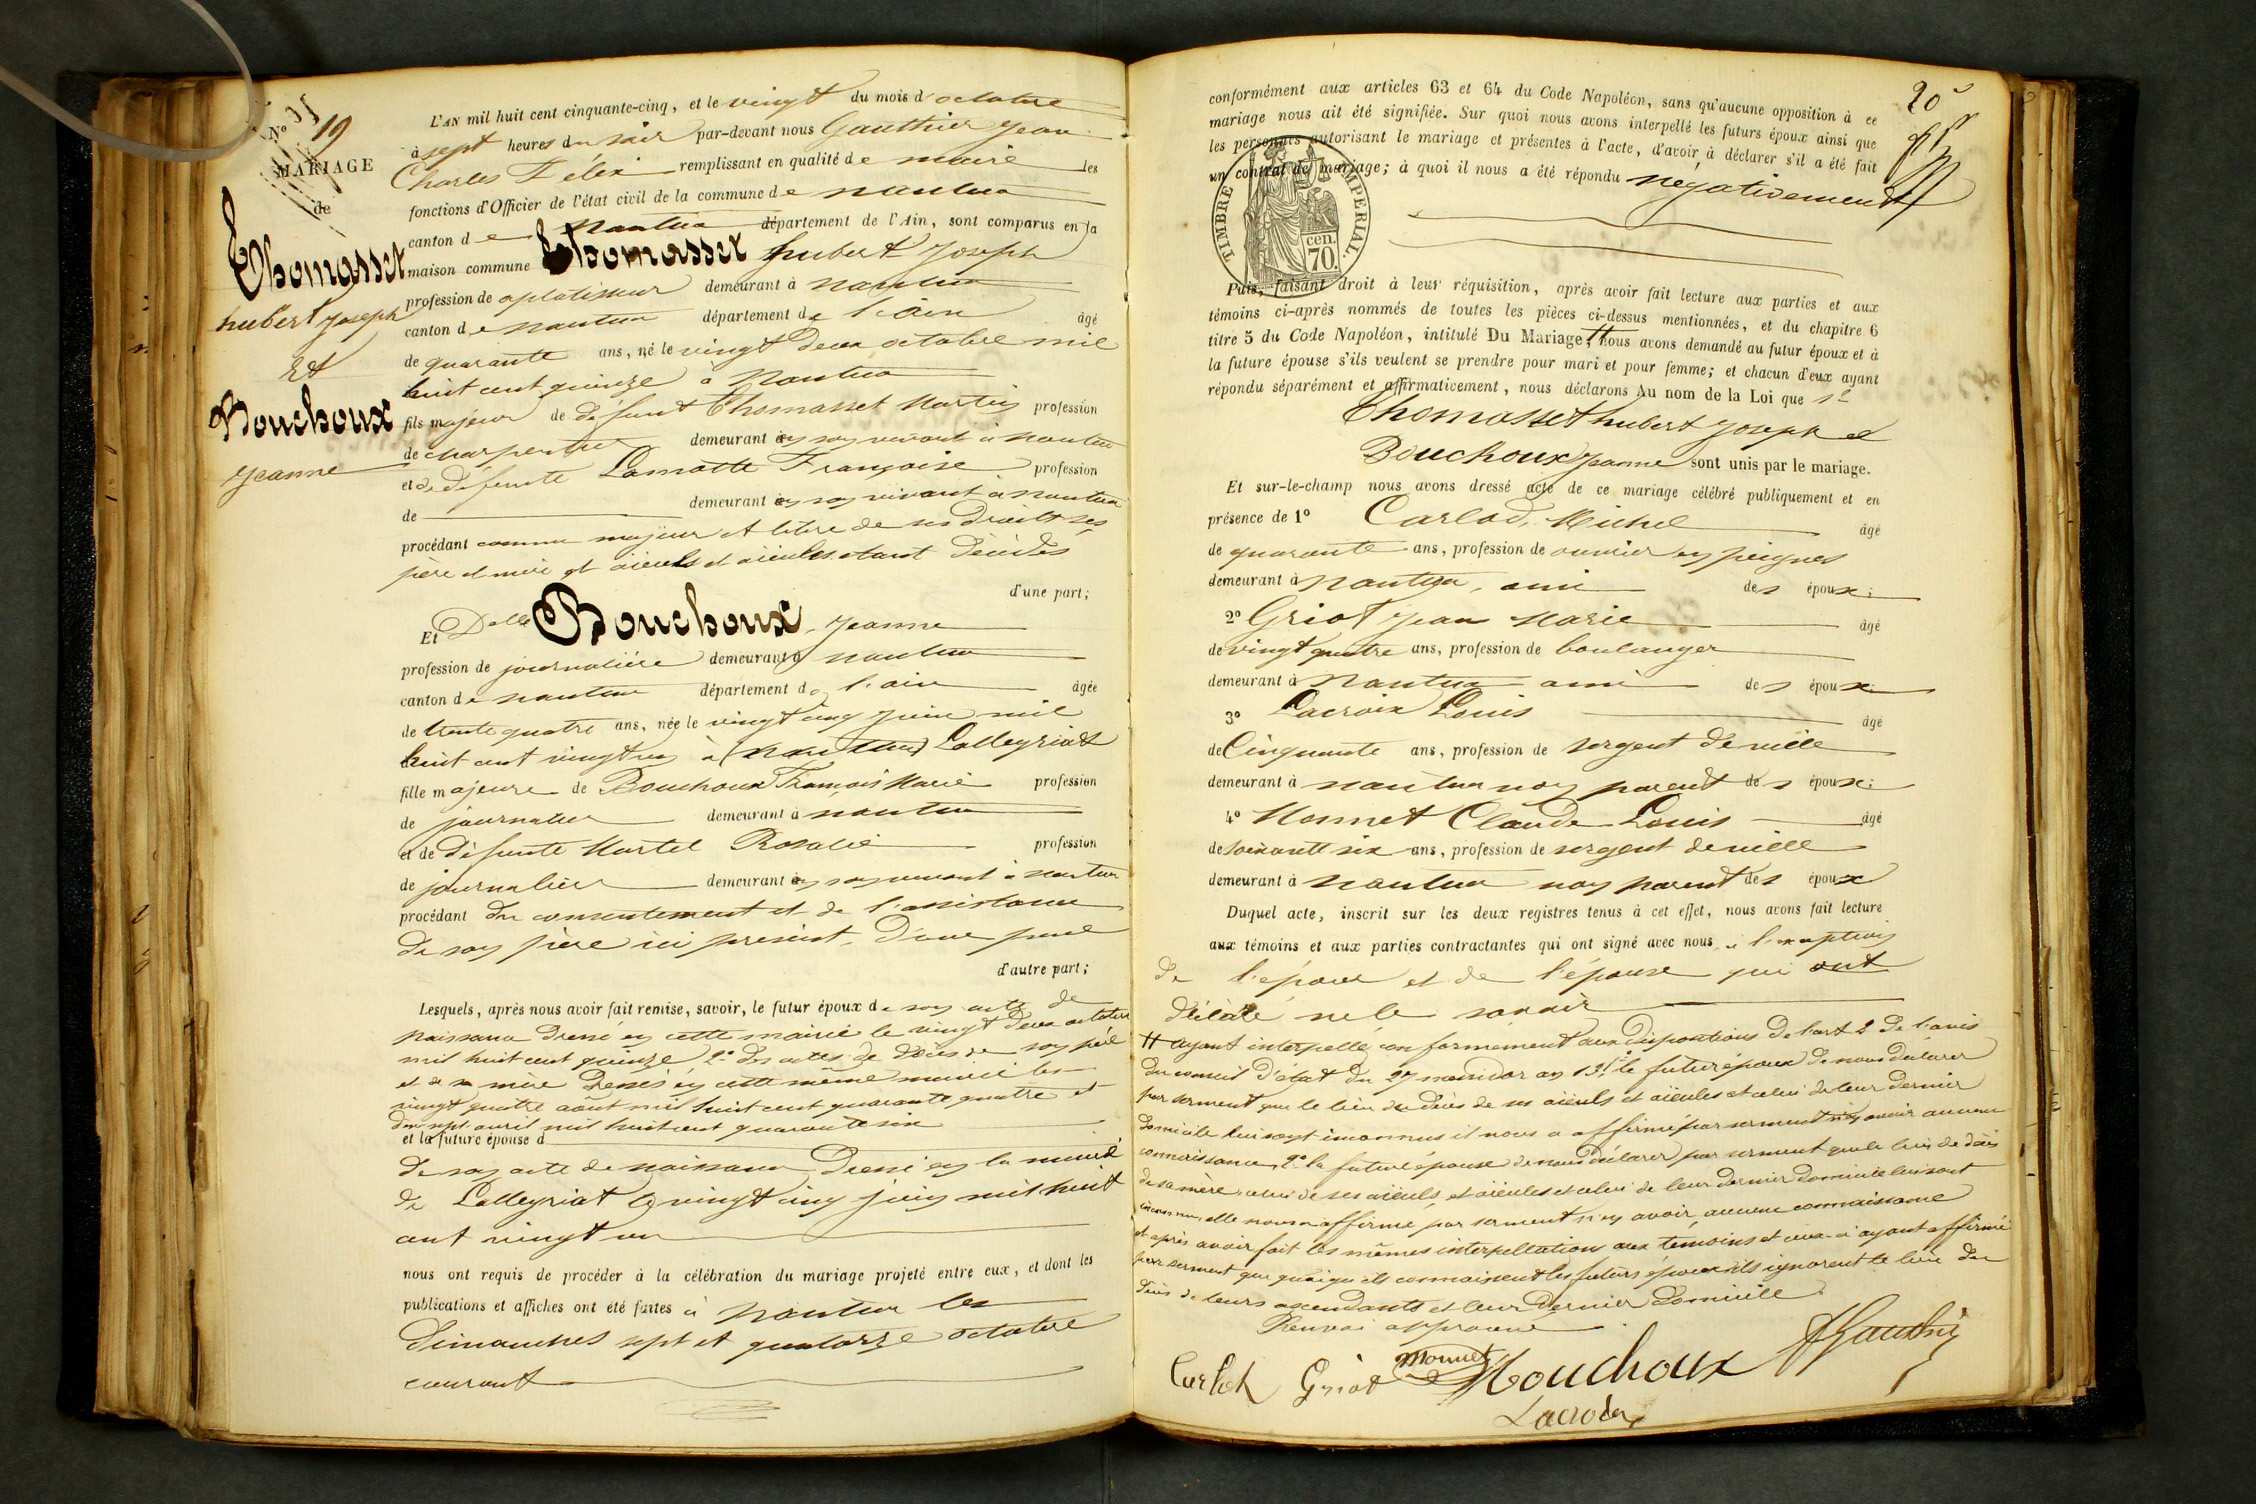 N° 19
MARIAGE
de
Thomasset
hubert Joseph
Et
Bouchoux
Jeanne
L'AN mil huit cent cinquante-cinq, et le vingt du mois d'octobre
à sept heures du soir par-devant nous Gauthier Jean
Charles Félix remplissant en qualité de maire les
fonctions d'Officier de l'état civil de la commune de nantua
canton de Nantua département de l'Ain, sont comparus en la
maison commune Thomasset hubert Joseph
profession de aplatisseur demeurant à nantua
canton de nantua département de l'ain âgé
de quarante ans, né le vingt deux octobre mil
huit cent quinze à Nantua
fils majeur de défunt Thomasset Martin profession
de charpentier demeurant en son vivant à nantua
et de défunte Lamotte Françoise profession
de demeurant en son vivant à nantua
procédant comme majeur et libre de ses droits ses
père et mère et aïeuls et aïeules étant décédés
d'une part;
Et Delle Bouchoux Jeanne
profession de journalière demeurant à nantua
canton de nantua département de l'ain âgée
de trente quatre ans, née le vingt cinq juin mil
huit cent vingt un à nantua Lalleyriat
fille majeure de Bouchoux François Marie profession
de journalier demeurant à nantua
et de défunte Martel Rosalie profession
de journalière demeurant en son vivant à nantua
procédant du consentement et de l'assistance
de son père ici présent, d'une part
d'autre part;
Lesquels, après nous avoir fait remise, savoir, le futur époux de son acte de
naissance dressé en cette mairie le vingt deux octobre
mil huit cent quinze 2° des actes de décès de son père
et de sa mère dressés en cette même mairie les
vingt quatre août mil huit cent quarante quatre et
dix sept avril mil huit cent quarante six
et la future épouse d
de son acte de naissance dressé en la mairie
de Lalleyriat le vingt cinq juin mil huit
cent vingt un
nous ont requis de procéder à la célébration du mariage projeté entre eux, et dont les
publications et affiches ont été faites à nantua les
dimanches sept et quatorze octobre
courant
20
conformément aux articles 63 et 64 du Code Napoléon, sans qu'aucune opposition à ce
mariage nous ait été signifiée. Sur quoi nous avons interpellé les futurs époux ainsi que
les personnes autorisant le mariage et présentes à l'acte, d'avoir à déclarer s'il a été fait
un contrat de mariage; à quoi il nous a été répondu négativement
TIMBRE IMPERIAL.
cen.
70.
Puis, faisant droit à leur réquisition, après avoir fait lecture aux parties et aux
témoins ci-après nommés de toutes les pièces ci-dessus mentionnées, et du chapitre 6
titre 5 du Code Napoléon, intitulé Du Mariage, # nous avons demandé au futur époux et à
la future épouse s'ils veulent se prendre pour mari et pour femme; et chacun d'eux ayant
répondu séparément et affirmativement, nous déclarons Au nom de la Loi que
Thomasset hubert Joseph et
Bouchoux Jeanne sont unis par le mariage.
Et sur-le-champ nous avons dressé acte de ce mariage célébré publiquement et en
présence de 1° Carlod, Michel âgé
de quarante ans, profession de ouvrier en peignes
demeurant à Nantua, ami des époux;
2° Griot Jean Marie âgé
de vingt quatre ans, profession de boulanger
demeurant à Nantua ami des époux
3° Lacroix Louis âgé
de Cinquante ans, profession de sergent de ville
demeurant à nantua non parent des époux;
4° Monnet Claude Louis âgé
de soixante six ans, profession de sergent de ville
demeurant à nantua non parent des époux
Duquel acte, inscrit sur les deux registres tenus à cet effet, nous avons fait lecture
aux témoins et aux parties contractantes qui ont signé avec nous, à l'exception
de l'époux et de l'épouse qui ont
déclaré ne le savoir
# ayant interpellé conformément aux dispositions de l'art 2 de l'avis
du conseil d'état du 27 messidor an 13 1° le futur époux de nous déclarer
par serment que le lieu du décès de ses aïeuls et aïeules et celui de leur dernier
domicile lui sont inconnus il nous a affirmé par serment n'en avoir aucune
connaissance, 2° la future épouse de nous déclarer par serment que le lieu de décès
de sa mère, celui de ses aïeuls, et aïeules et celui de leur dernier domicile lui sont
inconnus, elle nous a affirmé par serment n'en avoir aucune connaissance
et après avoir fait les mêmes interpellations aux témoins et ceux-ci ayant affirmé
par serment que quoique ils connaissent les futurs époux ils ignorent le lieu du
décès de leurs ascendants et leur dernier domicile
Renvoi approuvé
Carlod Griot Monnet Bouchoux Gauthier
Lacroix